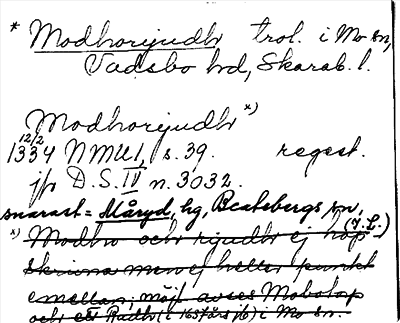 * Modhorijudh trol. i Mo sn,
Vadsbo hd, Skarab. l.
Modhorijudh x)
12/2
1334 NMU1, s. 39. regest.
jfr D.S. IV n. 3032.
snarast = Måryd, hg, Beatebergs sn,
(I. L.)
x) Modho och rijudh ej hop
skrivna men ej heller punkt
emellan; möjl. avses Mobolap
och ett Rudh (i 1637 års jb) i Mo sn.